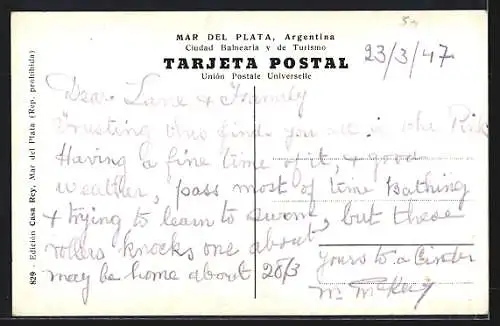 50
MAR DEL PLATA, Argentina
Ciudad Balnearia y de Turismo
TARJETA POSTAL
Unión Postale Universelle
23/3/47
829 - Edición Casa Rey, Mar del Plata (Rep. prohibida)
Dear Lane & Family
Trusting this find you all in the Pink
Having a fine time of it, & good
weather, pass most of time Bathing
& trying to learn to swim, but these
rollers knocks one about
may be home about 26/3
yours to a
Mr